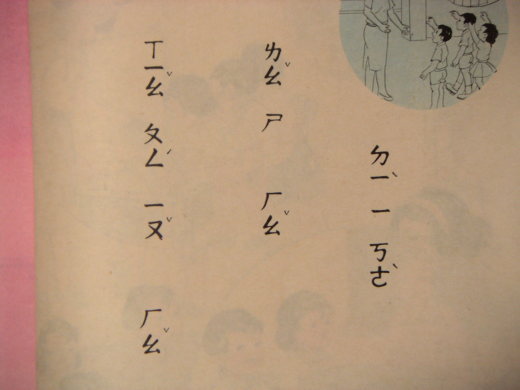 ㄉㄧˋ ㄧ ㄎㄜˋ
ㄌㄠˇ ㄕ ㄏㄠˇ
ㄒㄧㄠˇ ㄆㄥˊ ㄧㄡˇ ㄏㄠˇ